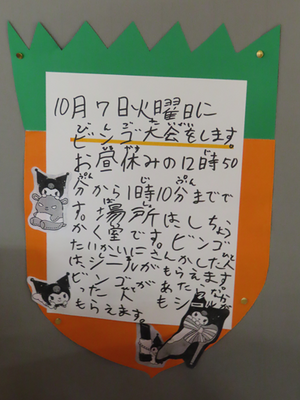 10月7日火曜日に
ビンゴ大会をします。
お昼休みの12時50
分から1時10分までで
す。場所は、しちょう
かく室です。ビンゴ
たいかいにさんかした人
は、シールがもらえます
ビンゴがあたらなか
った人もシール
もらえます。